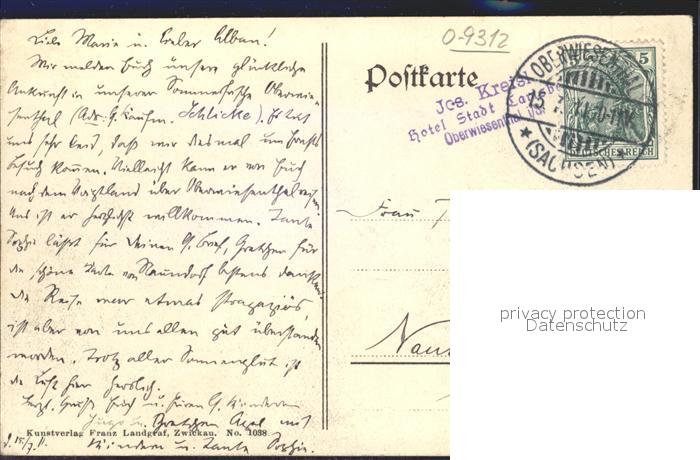 O-9312
Liebe Marie u. lieber Alban!
Wir melden Euch unsere glückliche
Ankunft in unserer Sommerfrische Oberwie-
senthal (Adr. G. Kaufm. Schlicke). Es tut
uns sehr leid, daß wir diesmal um Ernsts
Besuch kommen. Vielleicht kann er von Euch
nach dem Voigtland über Oberwiesenthal reisen.
Uns ist er herzlichst willkommen. Tante
Sophie läßt für Deinen l. Brief, Gretchen für
die schöne Karte von Naundorf bestens danken
die Reise war etwas strapaziös,
ist aber von uns allen gut überstanden
worden. Trotz aller Sonnenglut ist
die Luft hier herrlich.
Herzl. Grüße Euch u. Euren l. Kindern
Hugo u. Gretchen Axel mit
Kindern u. Tante Sophie.
d. 15/7. 11.
Kunstverlag Franz Landgraf, Zwickau. No. 1038
Postkarte
Jos. Kreis
Hotel Stadt
Oberwiesenthal
OBERWIESENTHAL
(SACHSEN)
5
DEUTSCHES REICH
Frau
Nau
privacy protection
Datenschutz